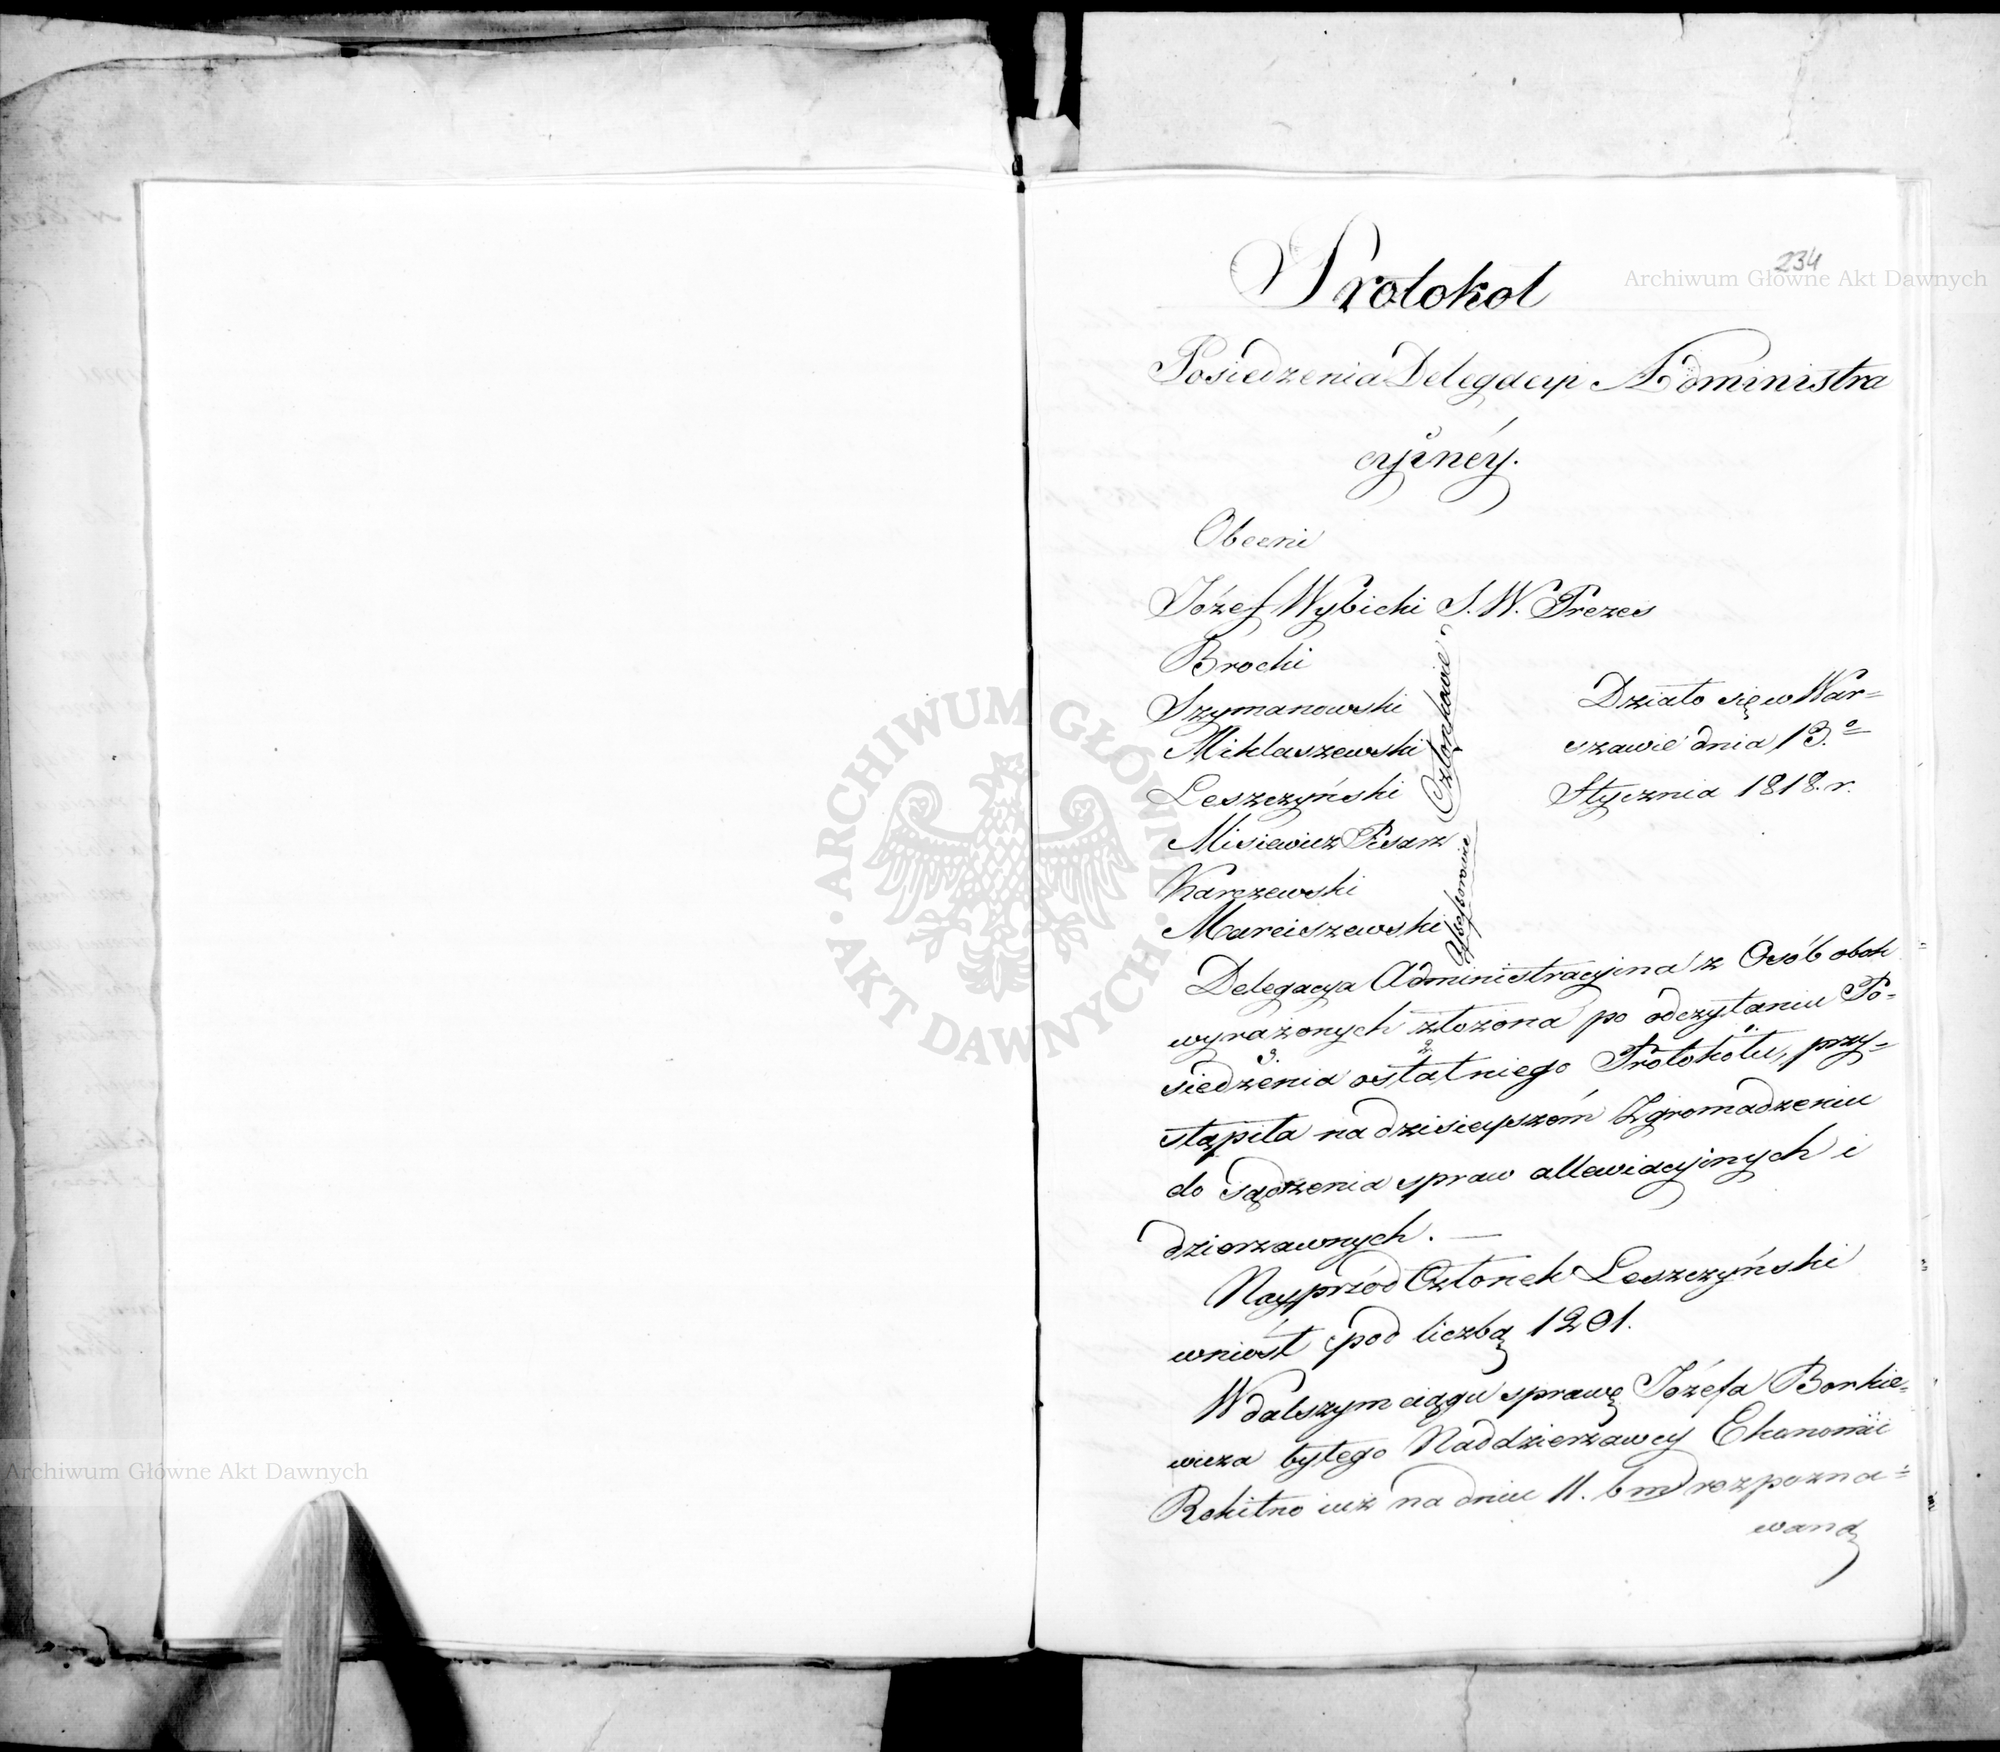 234
Protokol
Posiedzenia Delegacyi Administra
cyinéy.
Obecni
Józef Wybicki S. W. Prezes
Brocki
Szymanowski
Miklaszewski
Leszczyński
Członkowie
Misiewicz Pisarz
Karczewski
Marciszewski
Assessorowie
Działo się w War=
szawie dnia 13.º
Stycznia 1818. r.
Delegacya Administracyjna z Osób obok
wyrażonych złożona po odczytaniu Po=
siedzenia ostatniego Protokółu, przy=
stąpiła na dzisieyszém Zgromadzeniu
do sądzenia spraw allewiacyjnych i
dzierzawnych. —
Nayprzód Członek Leszczyński
wniósł pod liczbą 1201.
W dalszym ciągu sprawę Józefa Borkie=
wicza byłego Naddzierzawcy Ekonomii
Rokitno iuż na dniu 11. b m rozpozna=
waną
Archiwum Główne Akt Dawnych
ARCHIWUM GŁÓWNE · AKT DAWNYCH ·
Archiwum Główne Akt Dawnych